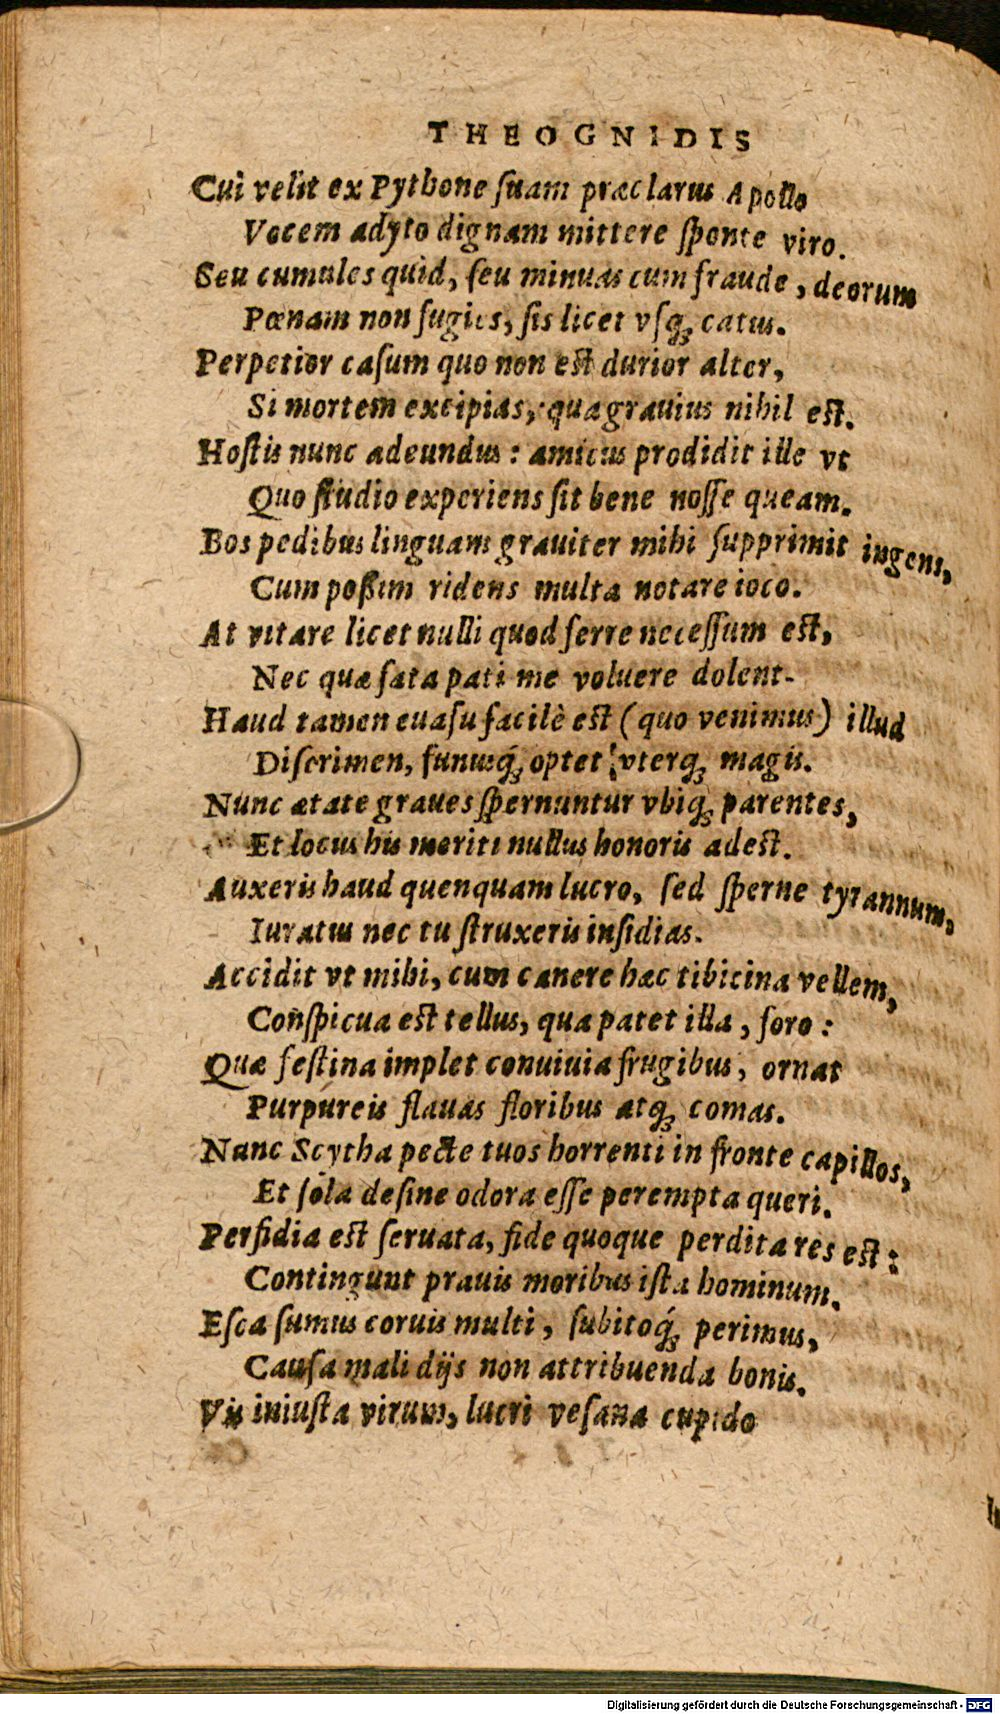 THEOGNIDIS
Cui velit ex Pythone ſuam præclarus Apollo
Vocem adyto dignam mittere ſponte viro.
Seu cumules quid, ſeu minuas cum fraude, deorum
Pœnam non fugies, ſis licet vſq; catus.
Perpetior caſum quo non eſt durior alter,
Si mortem excipias, qua grauius nihil eſt.
Hoſtis nunc adeundus: amicus prodidit ille vt
Quo ſtudio experiens ſit bene noſſe queam.
Bos pedibus linguam grauiter mihi ſupprimit ingens,
Cum poßim ridens multa notare ioco.
At vitare licet nulli quod ferre neceſſum eſt,
Nec quæ fata pati me voluere dolent.
Haud tamen euaſu facilè eſt (quo venimus) illud
Diſcrimen, funusq́; optet vterq; magis.
Nunc ætate graues ſpernuntur vbiq; parentes,
Et locus his meriti nullus honoris adeſt.
Auxeris haud quenquam lucro, ſed ſperne tyrannum,
Iuratus nec tu ſtruxeris inſidias.
Accidit vt mihi, cum canere hæc tibicina vellem,
Conſpicua eſt tellus, qua patet illa, foro:
Quæ feſtina implet conuiuia frugibus, ornat
Purpureis flauas floribus atq; comas.
Nunc Scytha pecte tuos horrenti in fronte capillos,
Et ſola deſine odora eſſe perempta queri.
Perfidia eſt ſeruata, fide quoque perdita res eſt:
Contingunt prauis moribus iſta hominum.
Eſca ſumus coruis multi, ſubitoq́; perimus,
Cauſa mali dijs non attribuenda bonis.
Vis iniuſta virum, lucri veſana cupido
Digitalisierung gefördert durch die Deutsche Forschungsgemeinschaft - DFG